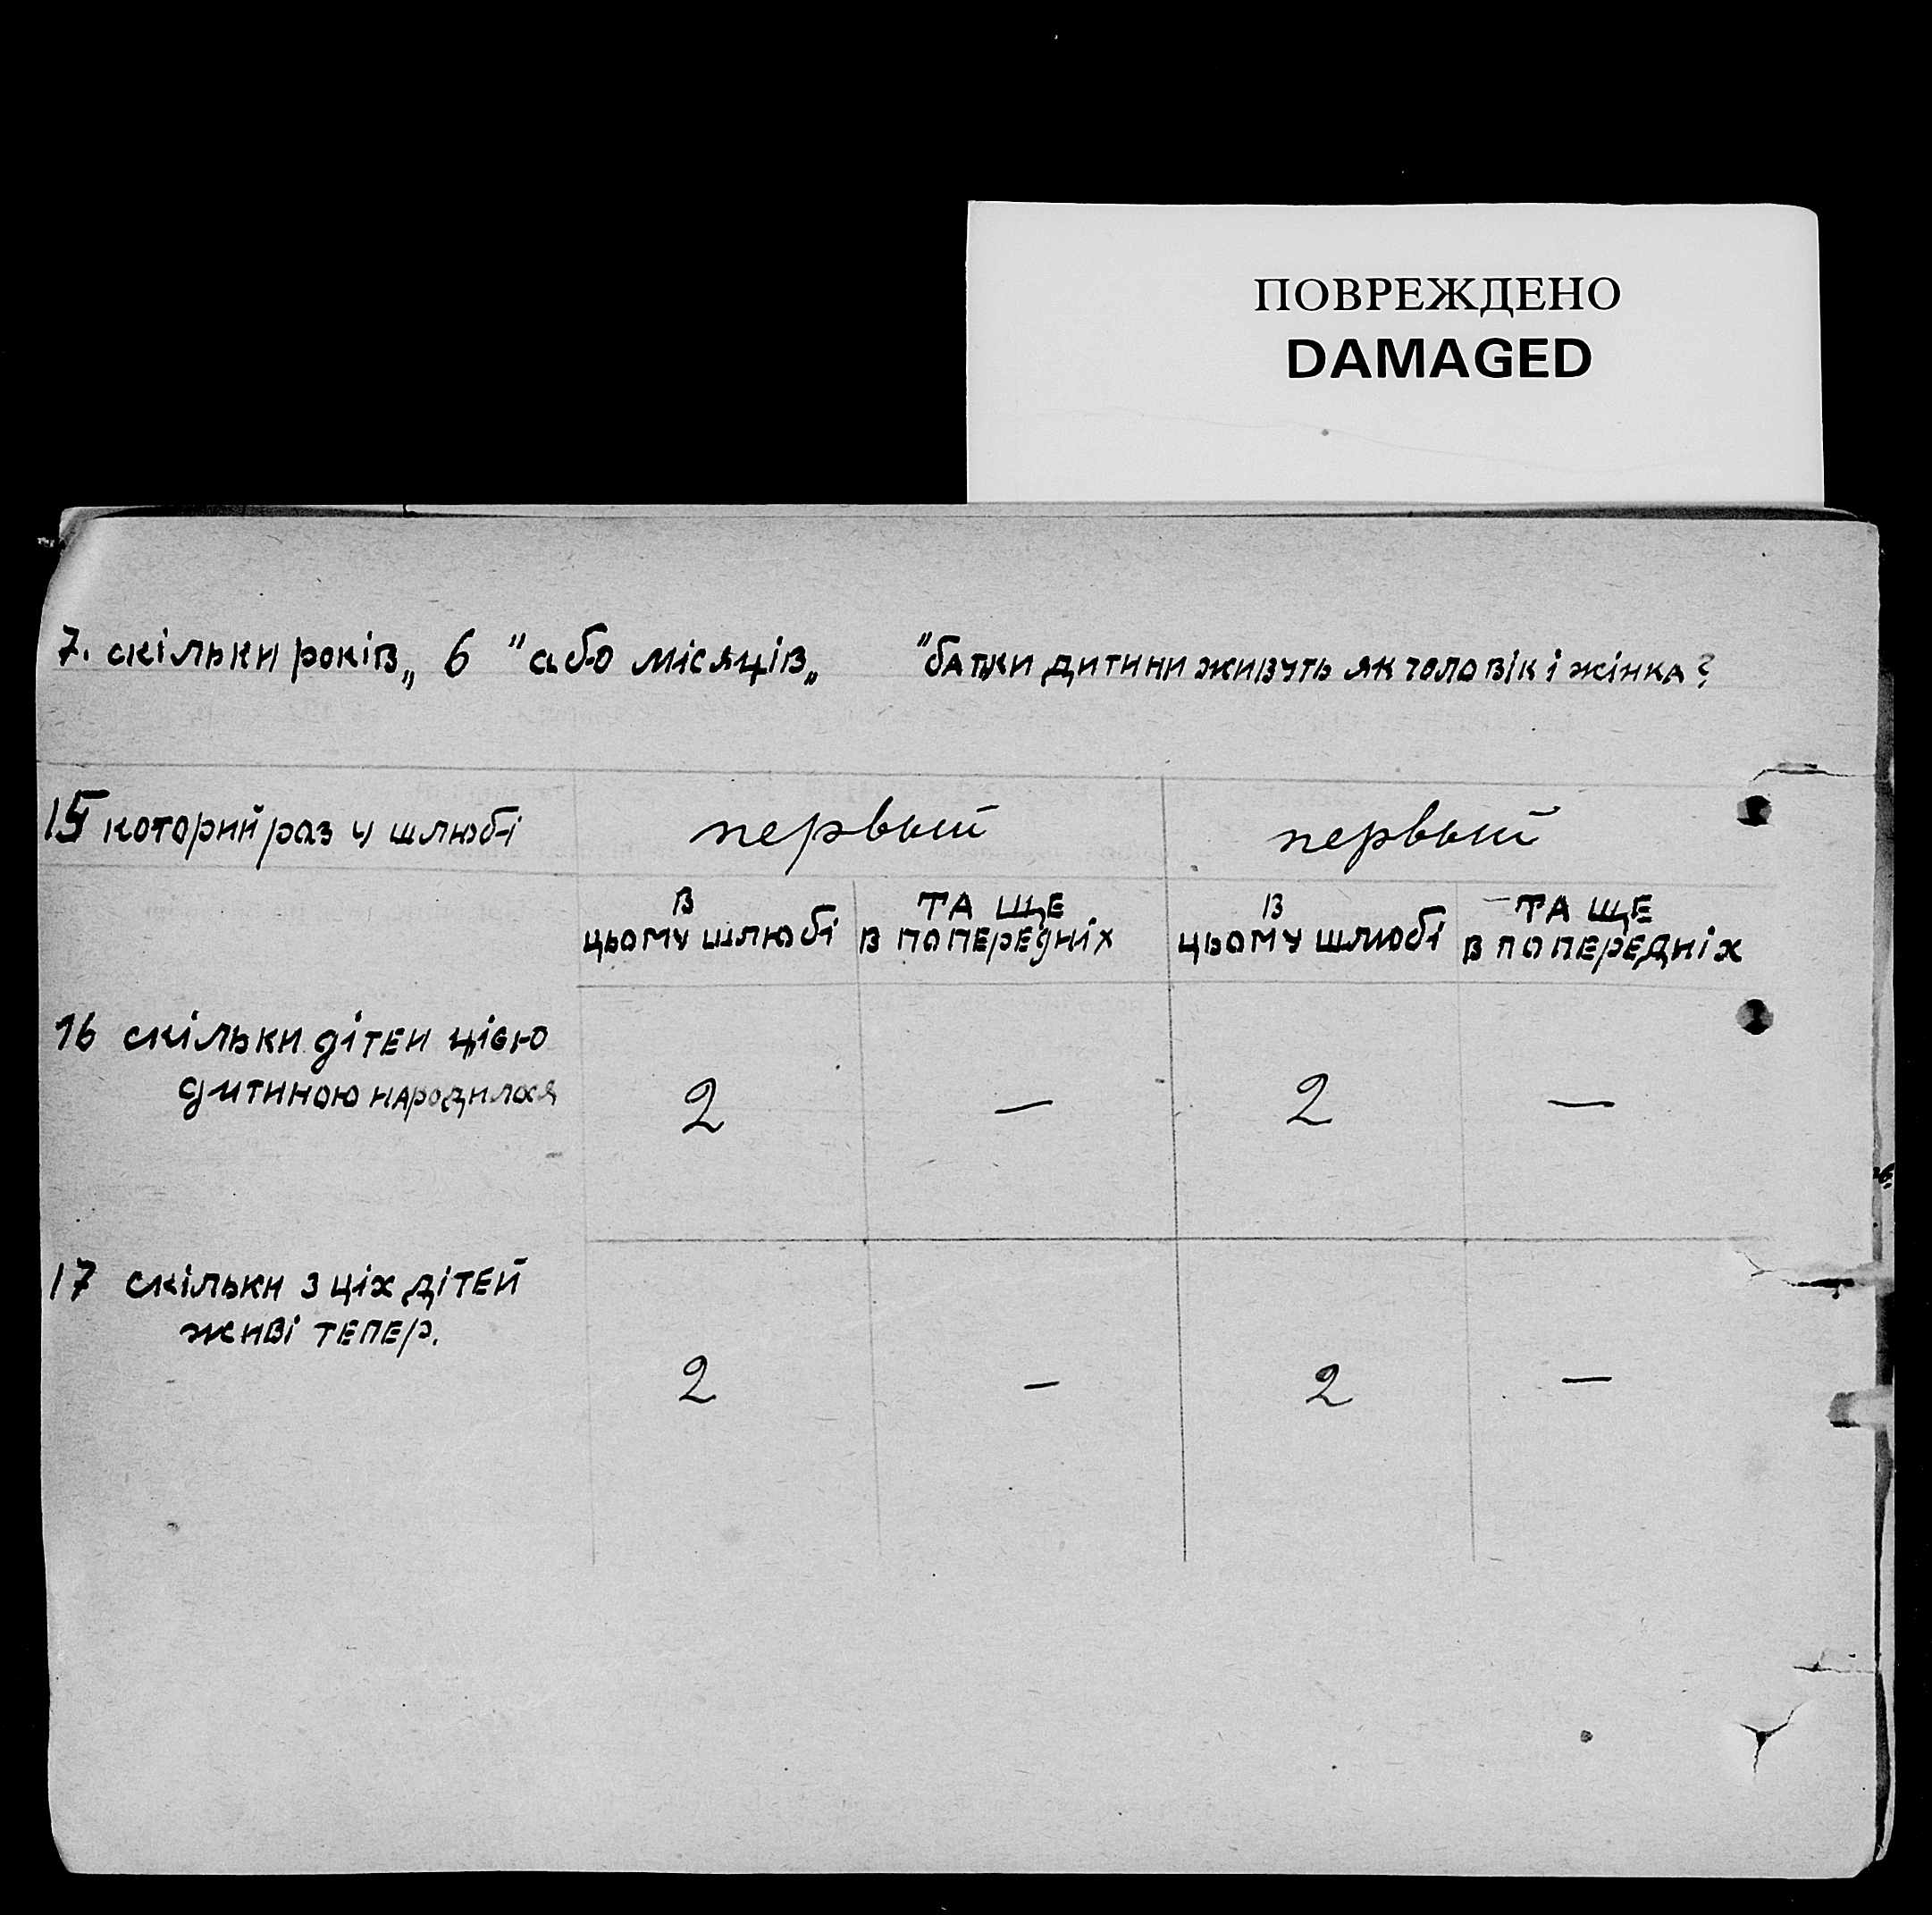 ПОВРЕЖДЕНО
DAMAGED
7. скільки років„ 6 " або місяців„ "батьки дитини живуть як чоловік і жінка?
15 которий раз у шлюбі первый первый
в та ще в та ще
цьому шлюбі в попередніх цьому шлюбі в попередніх
16 скільки дітей цією
дитиною народилося 2 — 2 —
17 скільки з ціх дітей
живі тепер.
2 — 2 —